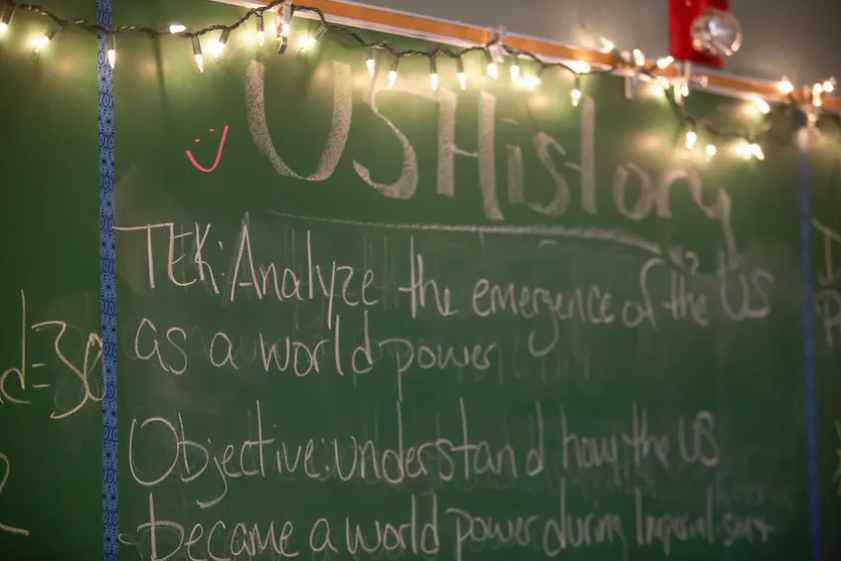 US History
TEK: Analyze the emergence of the US
as a world power
d=30
Objective: understand how the US
became a world power during Imperialism